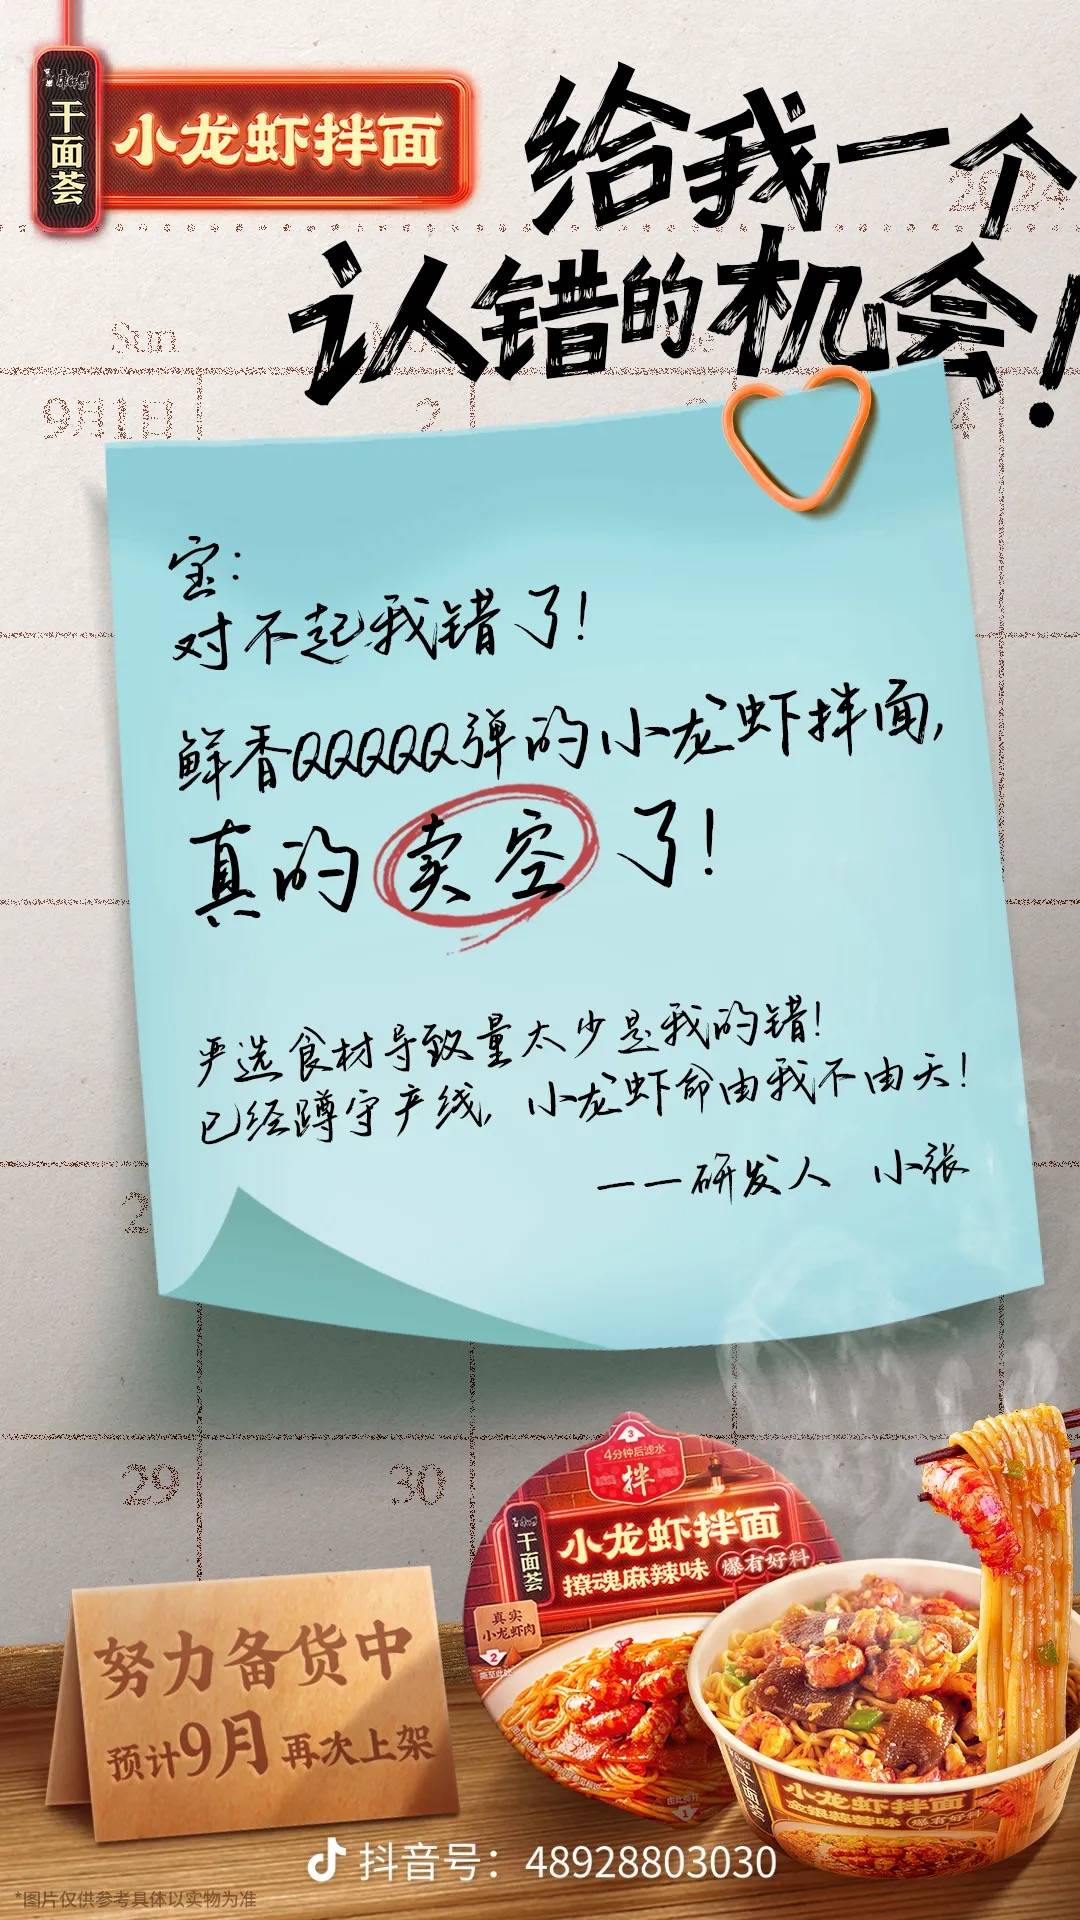 康师傅
干面荟
小龙虾拌面
给我一个
认错的机会！
2024
Sun
9月1日
2
4
宝：
对不起我错了！
鲜香QQQQQ弹的小龙虾拌面，
真的卖空了！
严选食材导致量太少是我的错！
已经蹲守产线，小龙虾命由我不由天！
——研发人 小张
29
30
3
4分钟后滤水
拌
干面荟
小龙虾拌面
撩魂麻辣味 爆有好料
真实
小龙虾肉
2
1
干面荟
小龙虾拌面
金银蒜蓉味 爆有好料
努力备货中
预计9月再次上架
抖音号：48928803030
*图片仅供参考具体以实物为准